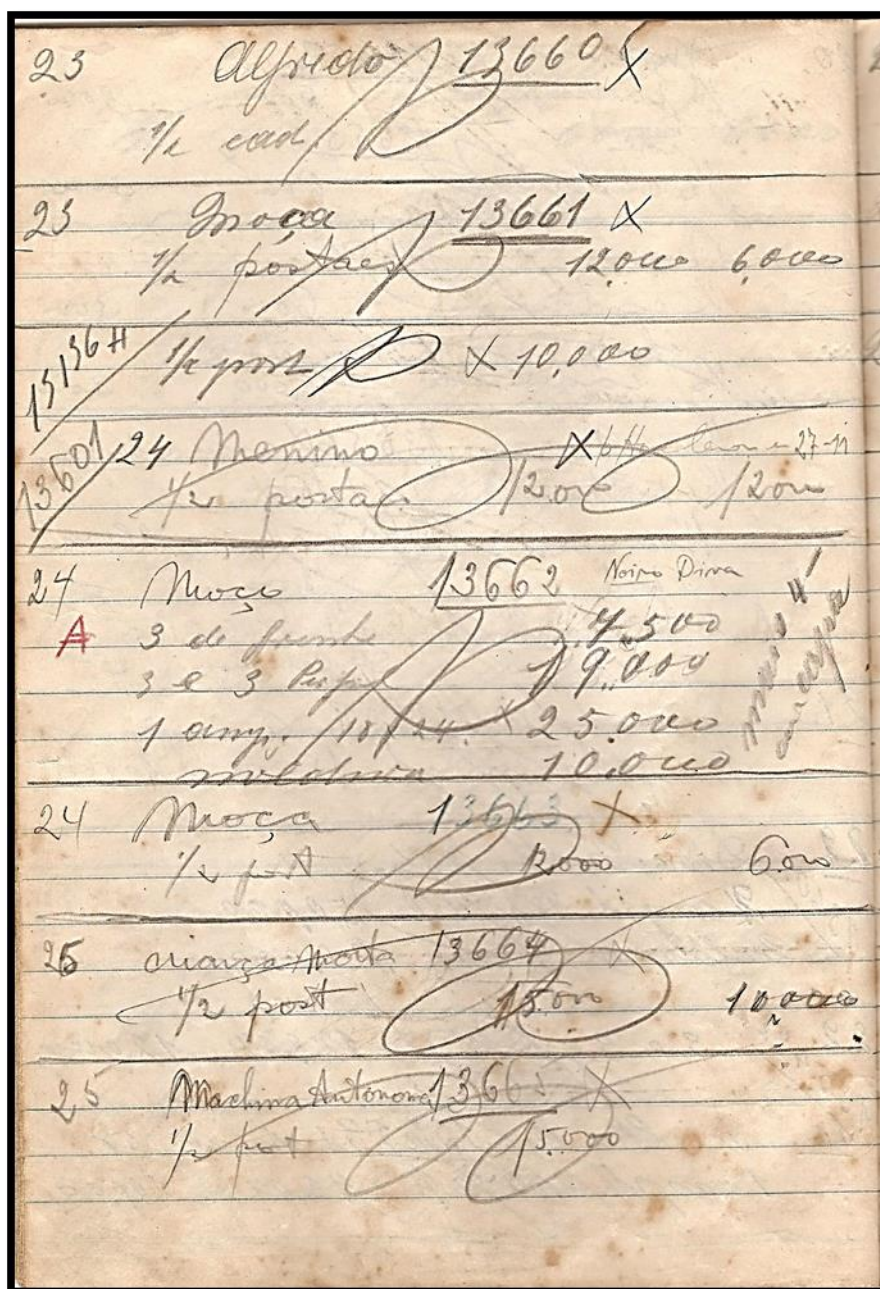 23 Alfredo 13660 X
1/2 cad
23 Moça 13661 X
1/2 postaes 12,000 6,000
1/2 post X 10,000
13601 24 Menino X 27-11
1/2 postaes 12,000 12,000
24 Moço 13662 Noivo Diva
A 3 de frente 7,500
3 e 3 Perfil 19,000
1 amp. 18 x 24. X 25.000
moldura 10.000
24 Moça 13663 X
1/2 post 12000 6000
25 criança Morta 13664 X
1/2 post 15000 10,000
25 Machina Autonoma 1366 X
1/2 post 15.000